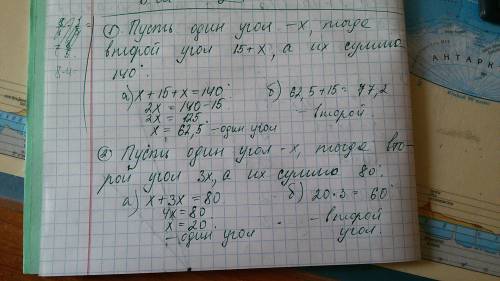 ① Пусть один угол - x, тогда
второй угол 15+x, а их сумма
140°.
а) x+15+x=140°
2x = 140-15
2x = 125
x = 62,5 - один угол
б) 62,5+15 = 77,2
- второй
② Пусть один угол - x, тогда вто-
рой угол 3x, а их сумма 80°.
а) x+3x=80
4x=80
x=20°
- один угол
б) 20·3 = 60°
- второй
угол.
АНТАРК